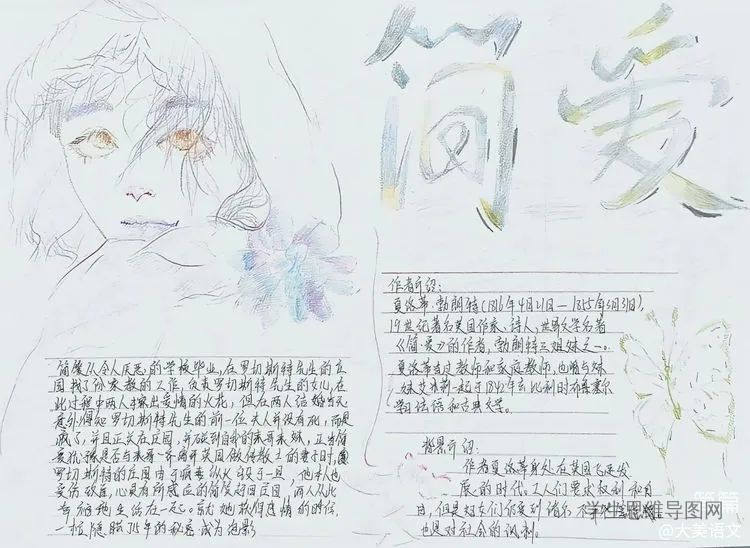 简爱
简爱从令人厌恶的学校毕业,在罗切斯特先生的庄
园找了份家教的工作,负责罗切斯特先生的女儿,在
此过程中两人擦出爱情的火花,但在两人结婚当天
意外得知罗切斯特先生的前一位夫人并没有死,而是
疯了,并且正关在庄园,并碰到自称的表哥表妹,正当简
爱犹豫是否与表哥一齐离开英国做传教士的妻子时,
罗切斯特的庄园由于疯妻纵火毁于一旦,他本人也
受伤致难,心灵有所感应的简爱赶回庄园,两人从此
生活在一起。
作者介绍:
夏洛蒂·勃朗特(1816年4月21日—1855年3月31日),
19世纪著名英国作家、诗人,世界文学名著
《简·爱》的作者,勃朗特三姐妹之一。
夏洛蒂当过教师和家庭教师,也曾与妹
妹艾米莉一起于1842年去比利时布鲁塞尔
学习法语和古典文学。
背景介绍:
作者夏洛蒂身处在英国飞速发
展的时代。工人们要求权利和自
由,但是妇女们
也是对社会的讽刺。
学生思维导图网
@大美语文